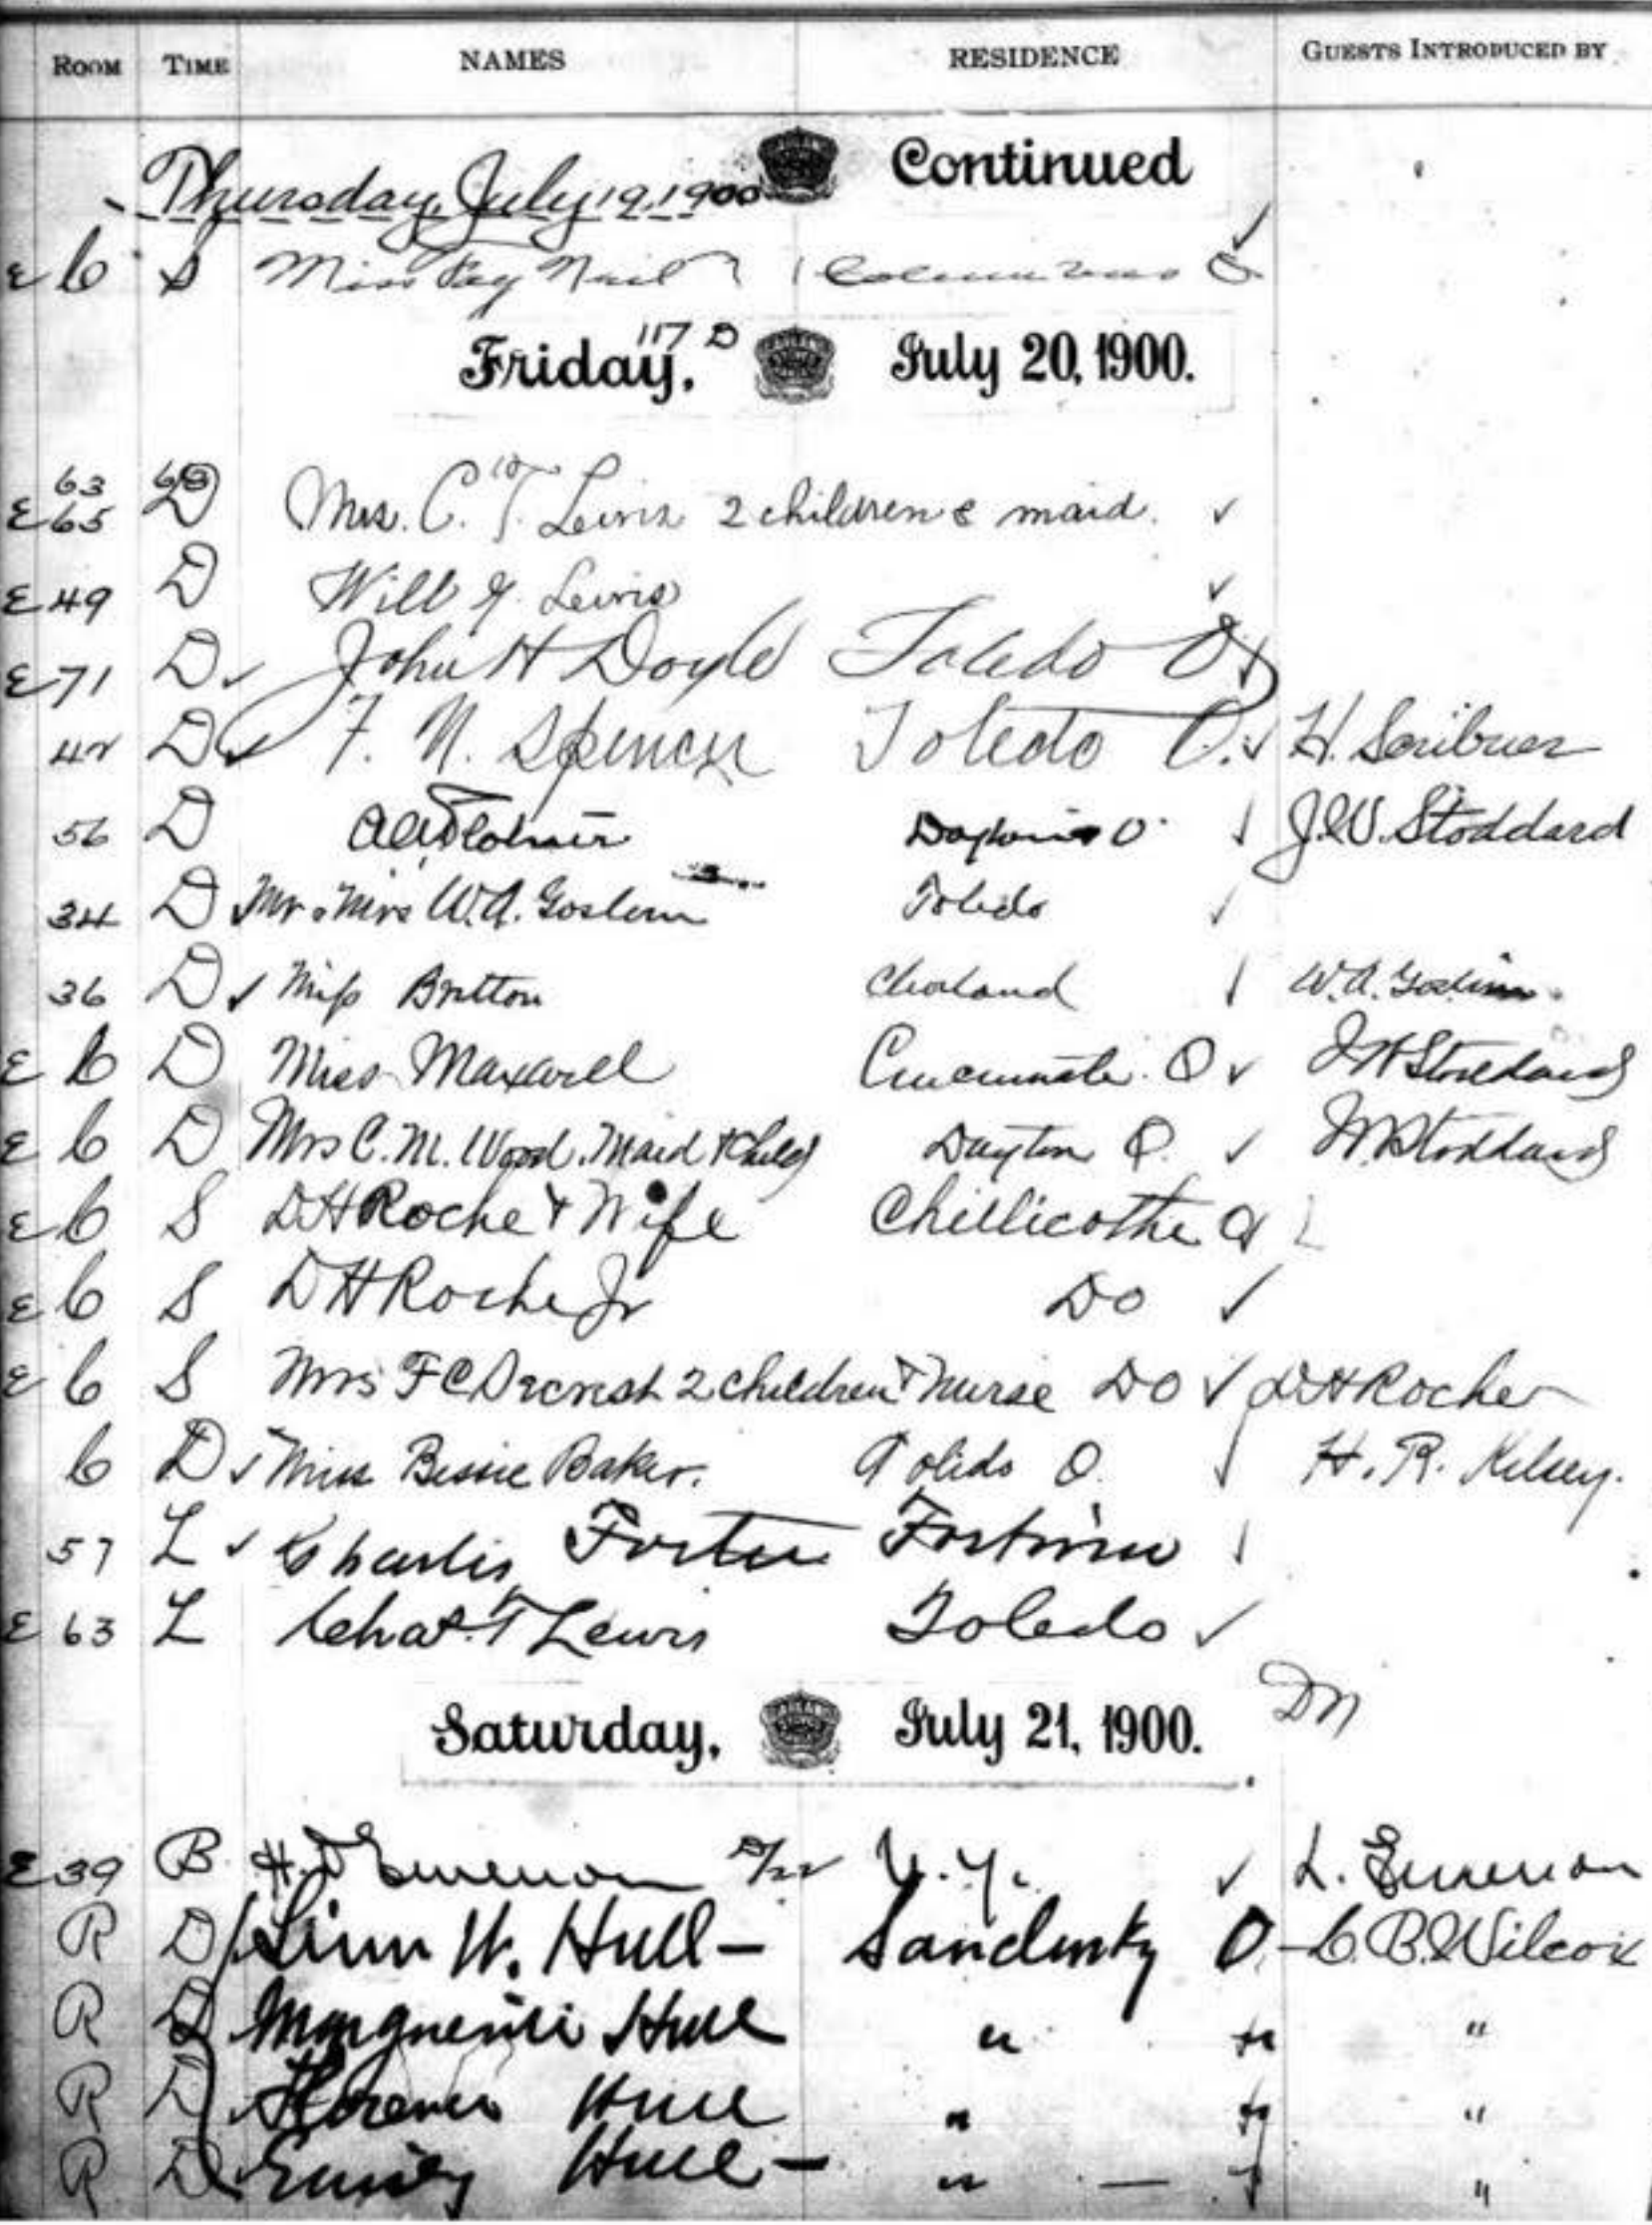 ROOM TIME NAMES RESIDENCE GUESTS INTRODUCED BY
Thursday, July 19, 1900 Continued
E 6 S Miss O
117 D
Friday, July 20, 1900.
63
E 65 D Mrs. C. T. Lewis 2 children & maid.
E 49 D Will Lewis
E 71 D John H Doyle Toledo O
42 D F. N. Spencer Toledo O. H. Scribner
56 D Dayton O J.W. Stoddard
34 D Mr & Mrs W.A. Gosline Toledo
36 D Miss Britton Cleveland W.A. Gosline
E 6 D Miss Maxwell Cincinnati O J W Stoddard
E 6 D Mrs C. M. Wood. Maid & Child Dayton O. J W Stoddard
E 6 S D H Roche & Wife Chillicothe O
E 6 S D H Roche Jr Do
E 6 S Mrs F C 2 children & Nurse Do D H Roche
6 D Miss Bessie Baker. Toledo O. H. R. Kelsey.
57 L Charles Foster Fostoria
E 63 L Chas. T Lewis Toledo
Saturday, July 21, 1900.
E 39 B H. Emerson N.Y. L. Emerson
R D Linn W. Hull — Sandusky O — C. B. Wilcox
R D Marguerite Hull " " "
R D Florence Hull " " "
R D Emily Hull — " — "